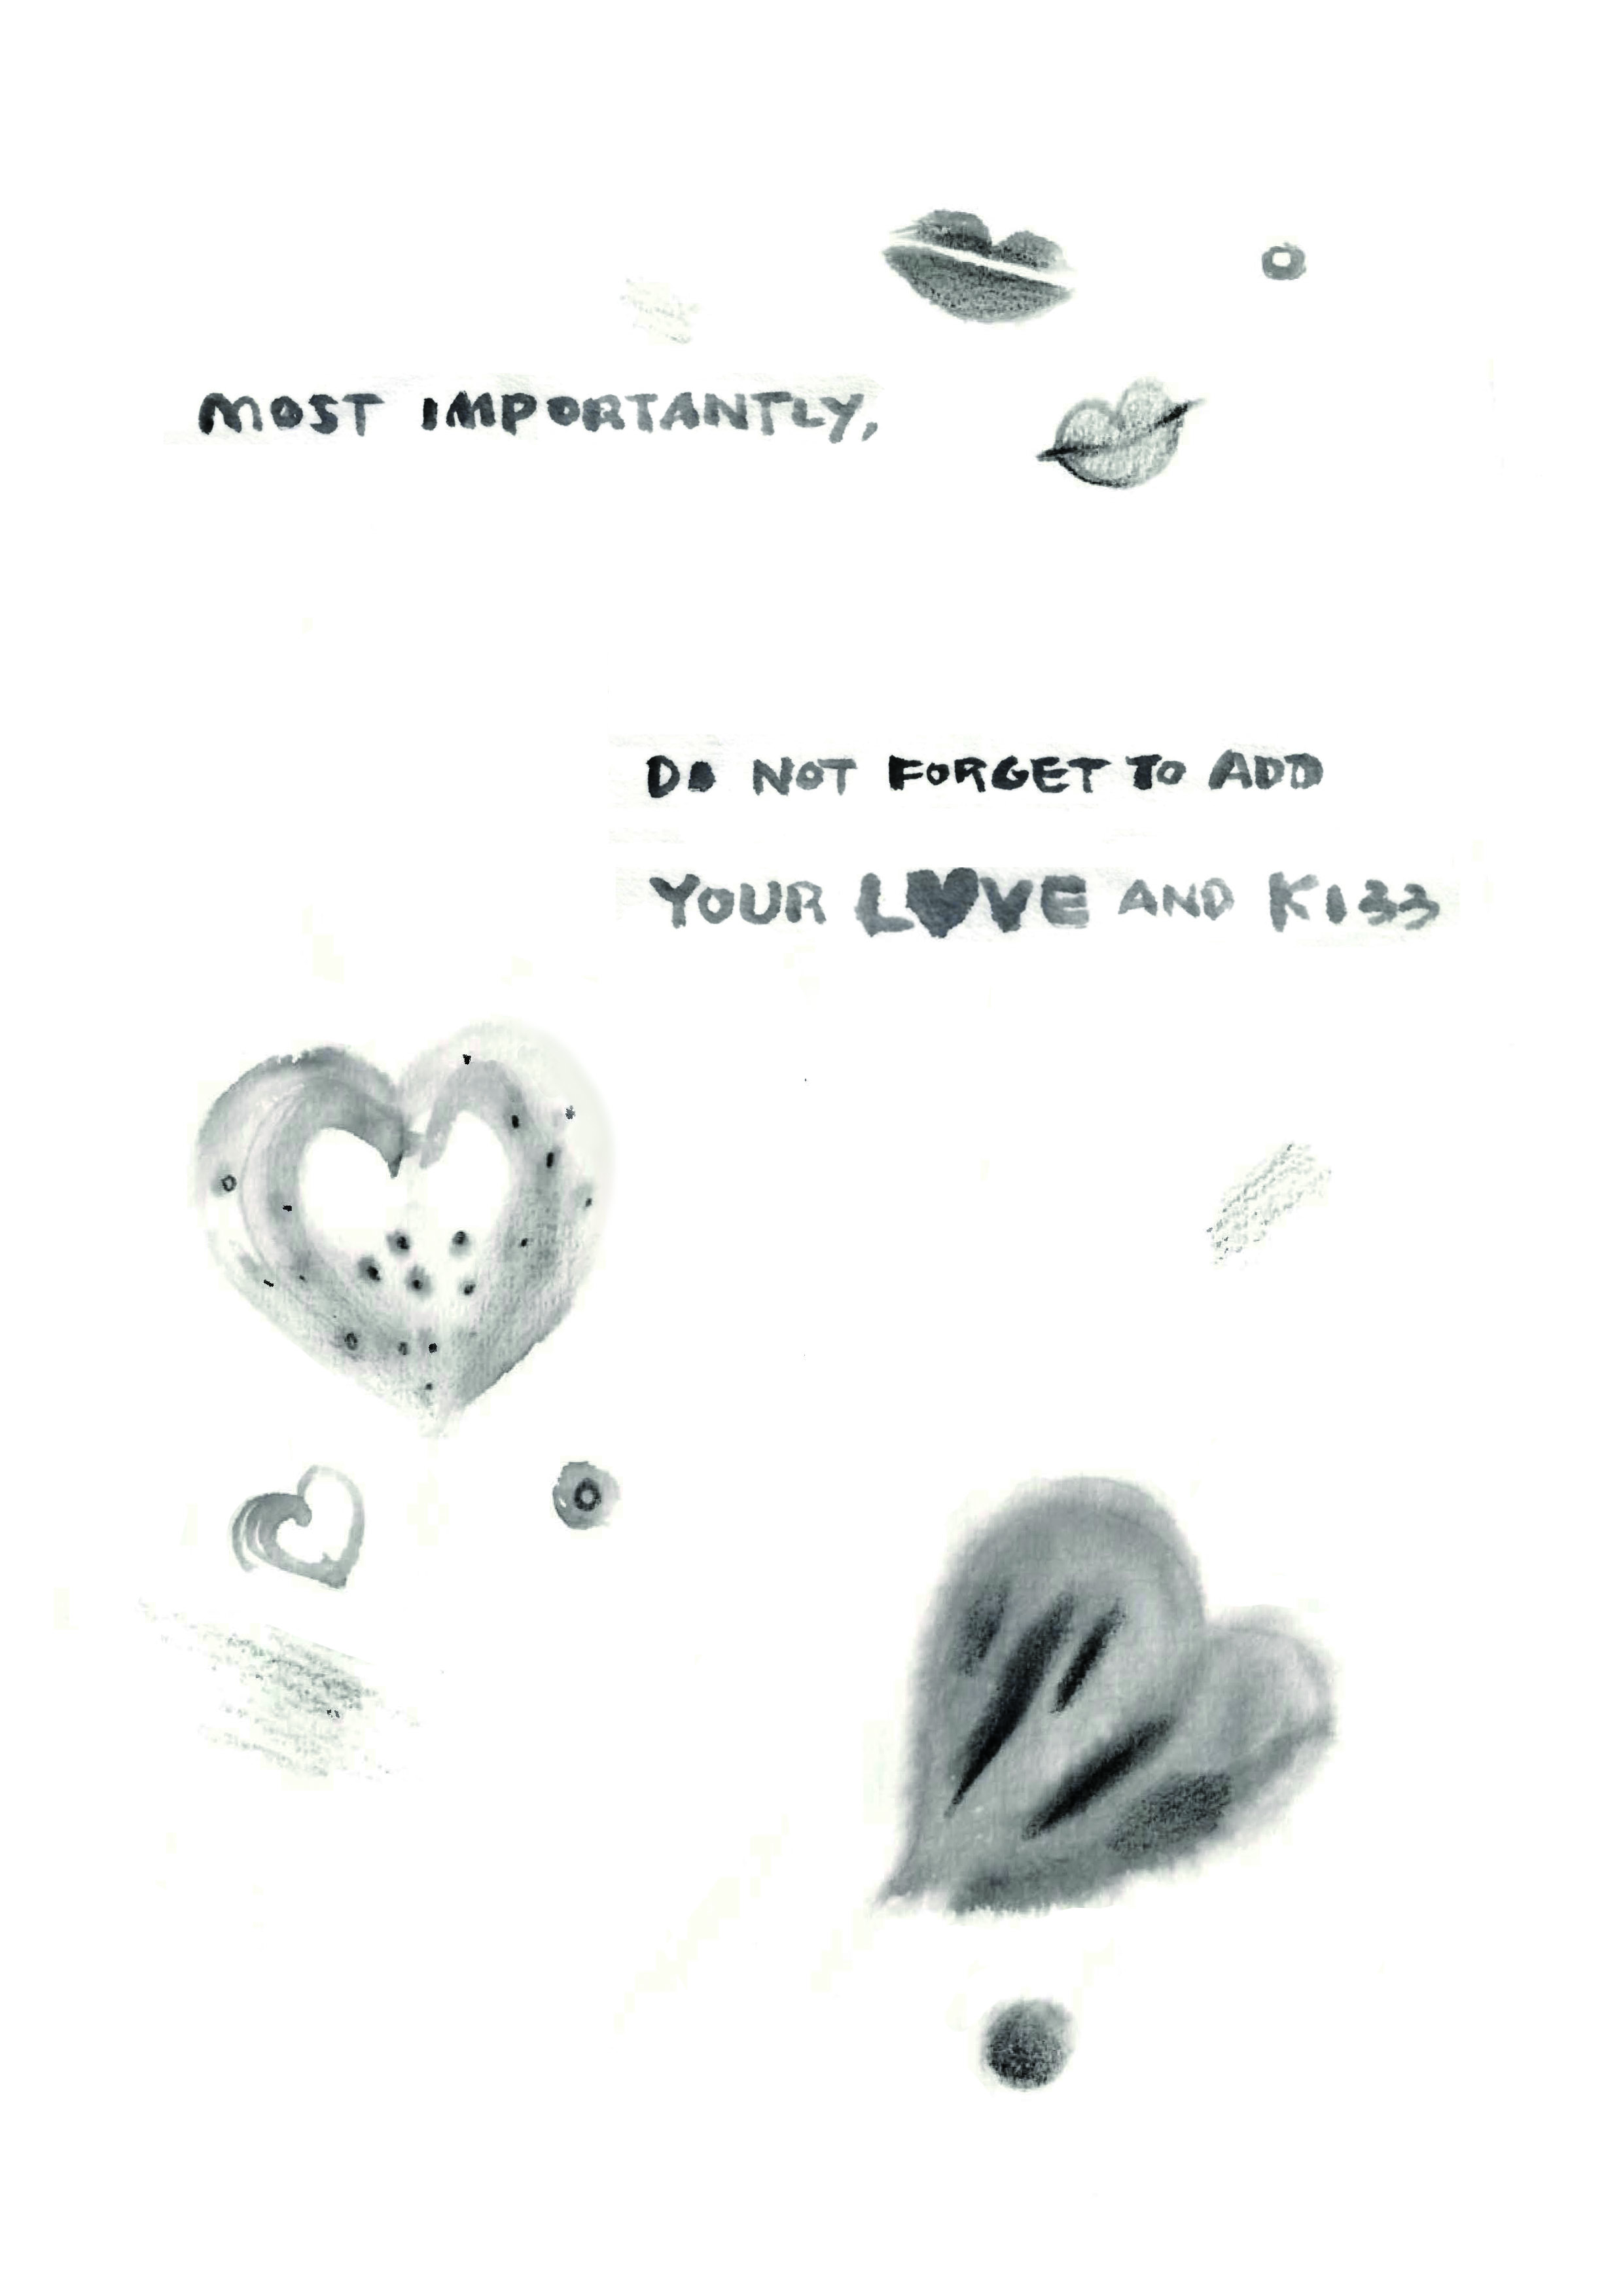 MOST IMPORTANTLY,
DO NOT FORGET TO ADD
YOUR L♥VE AND KI33